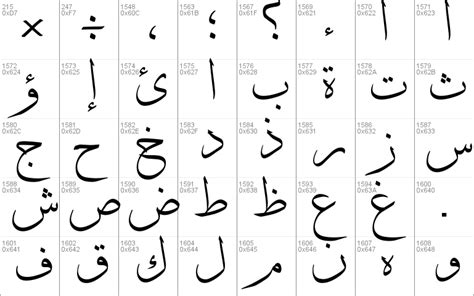 215 247 1548 1563 1567 1569 1570 1571
0xD7 0xF7 0x60C 0x61B 0x61F 0x621 0x622 0x623
× ÷ ، ؛ ؟ ء آ أ
1572 1573 1574 1575 1576 1577 1578 1579
0x624 0x625 0x626 0x627 0x628 0x629 0x62A 0x62B
ؤ إ ئ ا ب ة ت ث
1580 1581 1582 1583 1584 1585 1586 1587
0x62C 0x62D 0x62E 0x62F 0x630 0x631 0x632 0x633
ج ح خ د ذ ر ز س
1588 1589 1590 1591 1592 1593 1594 1600
0x634 0x635 0x636 0x637 0x638 0x639 0x63A 0x640
ش ص ض ط ظ ع غ ـ
1601 1602 1603 1604 1605 1606 1607 1608
0x641 0x642 0x643 0x644 0x645 0x646 0x647 0x648
ف ق ك ل م ن ه و